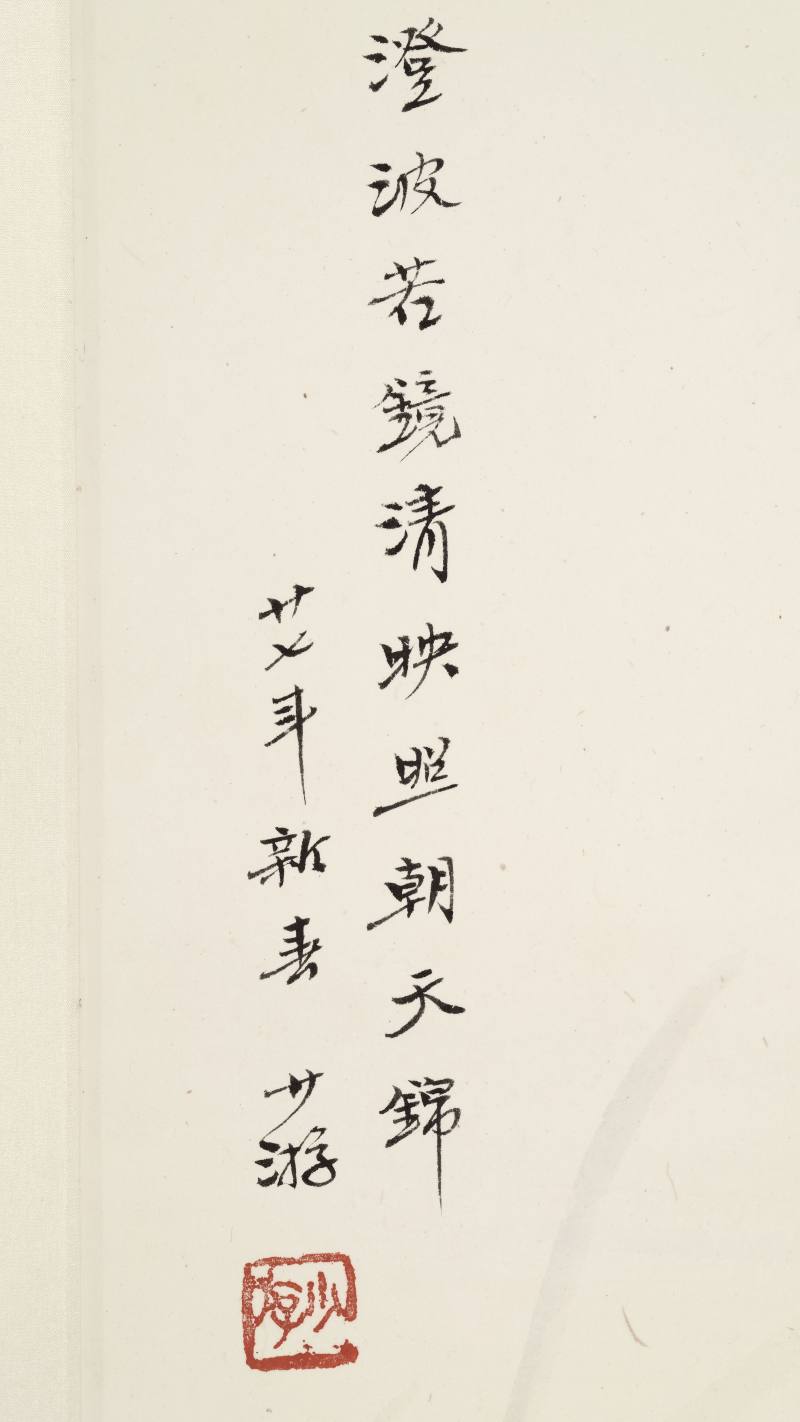 澄波若鏡清映照朝天錦
廿七年新春 少游
少游